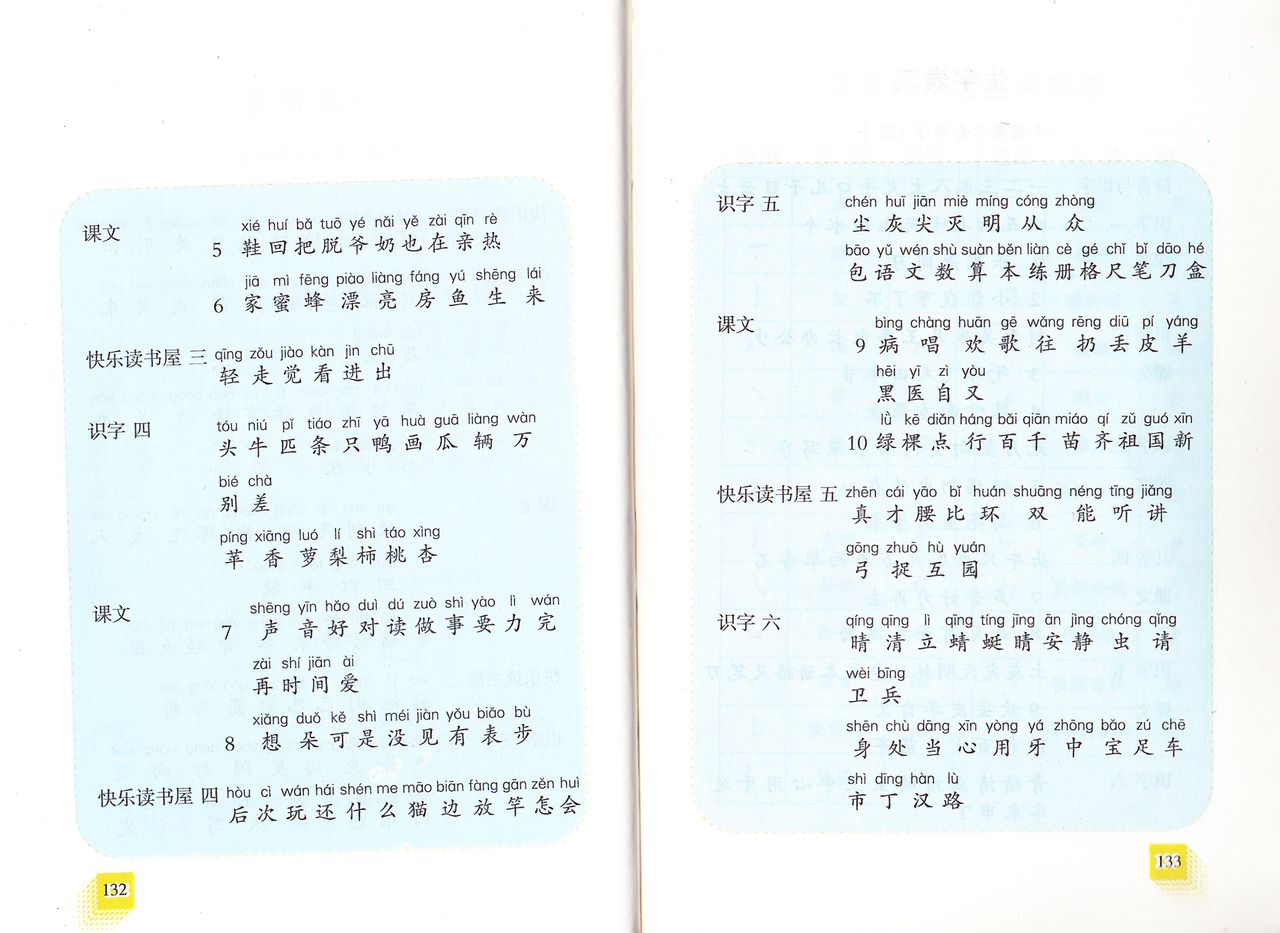 xié huí bǎ tuō yé nǎi yě zài qīn rè
课文 5 鞋回把脱爷奶也在亲热
jiā mì fēng piào liàng fáng yú shēng lái
6 家蜜蜂漂亮房鱼生来
qīng zǒu jiào kàn jìn chū
快乐读书屋 三 轻走觉看进出
tóu niú pǐ tiáo zhī yā huà guā liàng wàn
识字 四 头牛匹条只鸭画瓜辆万
bié chà
别差
píng xiāng luó lí shì táo xìng
苹香萝梨柿桃杏
shēng yīn hǎo duì dú zuò shì yào lì wán
课文 7 声音好对读做事要力完
zài shí jiān ài
再时间爱
xiǎng duǒ kě shì méi jiàn yǒu biǎo bù
8 想朵可是没见有表步
hòu cì wán hái shén me māo biān fàng gān zěn huì
快乐读书屋 四 后次玩还什么猫边放竿怎会
132
chén huī jiān miè míng cóng zhòng
识字 五 尘灰尖灭明从众
bāo yǔ wén shù suàn běn liàn cè gé chǐ bǐ dāo hé
包语文数算本练册格尺笔刀盒
bìng chàng huān gē wǎng rēng diū pí yáng
课文 9 病唱欢歌往扔丢皮羊
hēi yī zì yòu
黑医自又
lǜ kē diǎn háng bǎi qiān miáo qí zǔ guó xīn
10 绿棵点行百千苗齐祖国新
zhēn cái yāo bǐ huán shuāng néng tīng jiǎng
快乐读书屋 五 真才腰比环双能听讲
gōng zhuō hù yuán
弓捉互园
qíng qīng lì qīng tíng jīng ān jìng chóng qǐng
识字 六 晴清立蜻蜓睛安静虫请
wèi bīng
卫兵
shēn chù dāng xīn yòng yá zhōng bǎo zú chē
身处当心用牙中宝足车
shì dīng hàn lù
市丁汉路
133